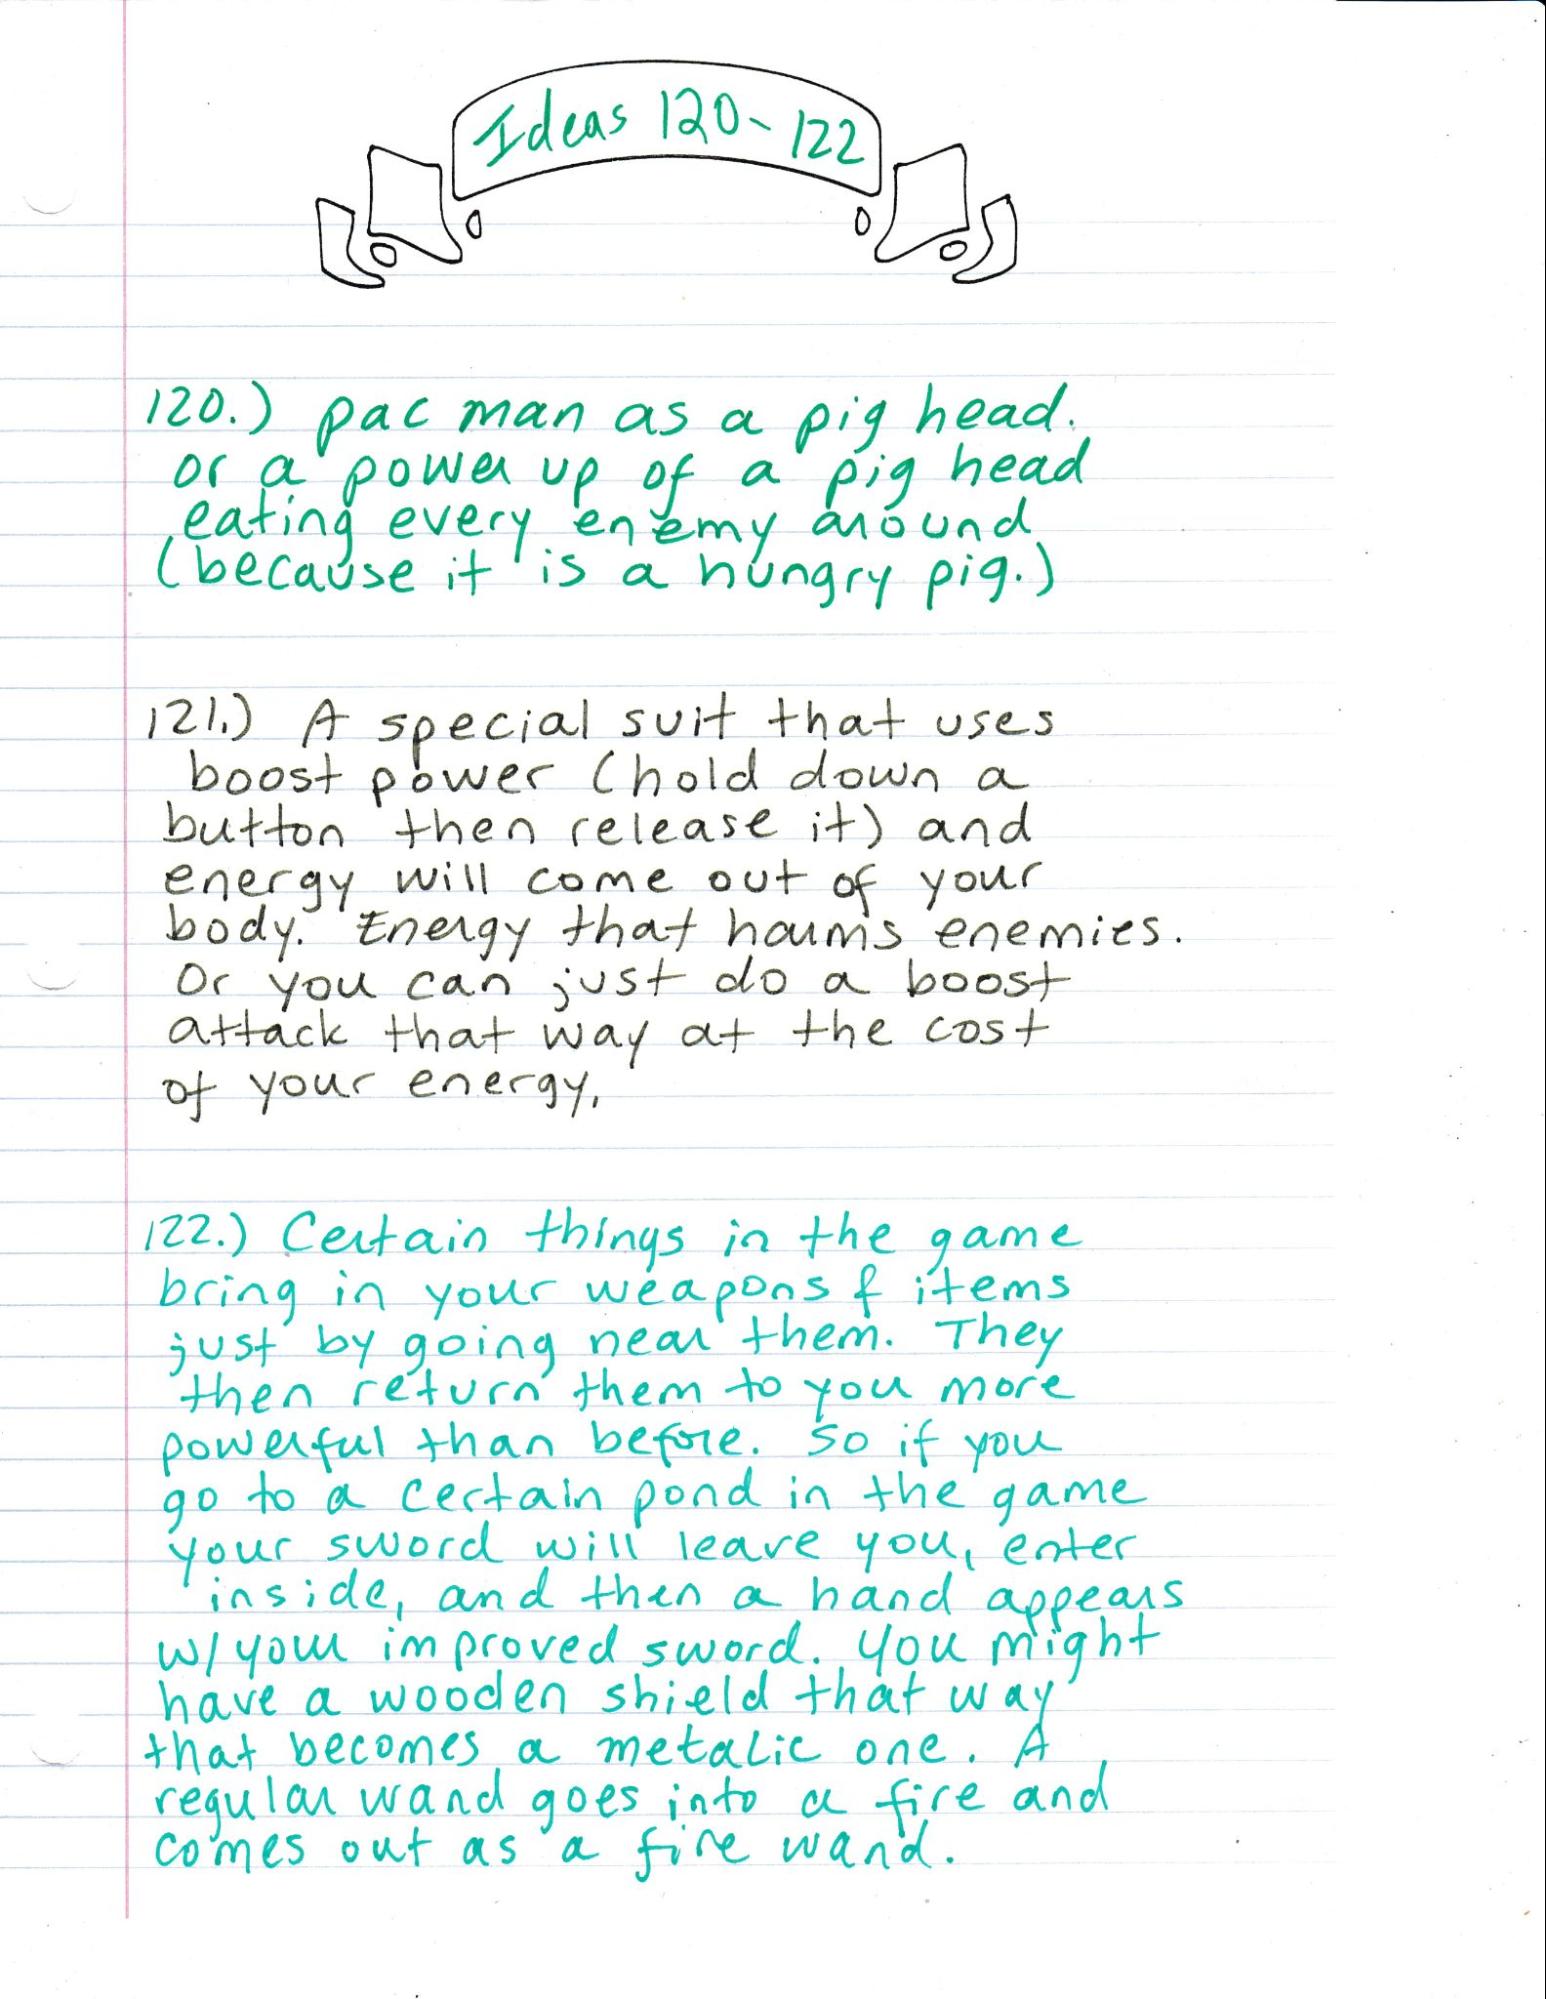 Ideas 120-122
120.) pac man as a pig head.
or a power up of a pig head
eating every enemy around
(because it is a hungry pig.)
121.) A special suit that uses
boost power (hold down a
button then release it) and
energy will come out of your
body. Energy that harms enemies.
Or you can just do a boost
attack that way at the cost
of your energy.
122.) Certain things in the game
bring in your weapons & items
just by going near them. They
then return them to you more
powerful than before. So if you
go to a certain pond in the game
your sword will leave you, enter
inside, and then a hand appears
w/your improved sword. You might
have a wooden shield that way
that becomes a metalic one. A
regular wand goes into a fire and
comes out as a fire wand.